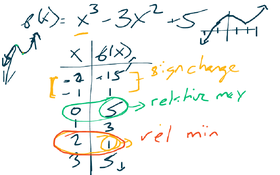 f(x) = x³ - 3x² + 5
x f(x)
-2 -15
-1 1 sign change
0 5 → relative max
1 3
2 1 rel min
3 5